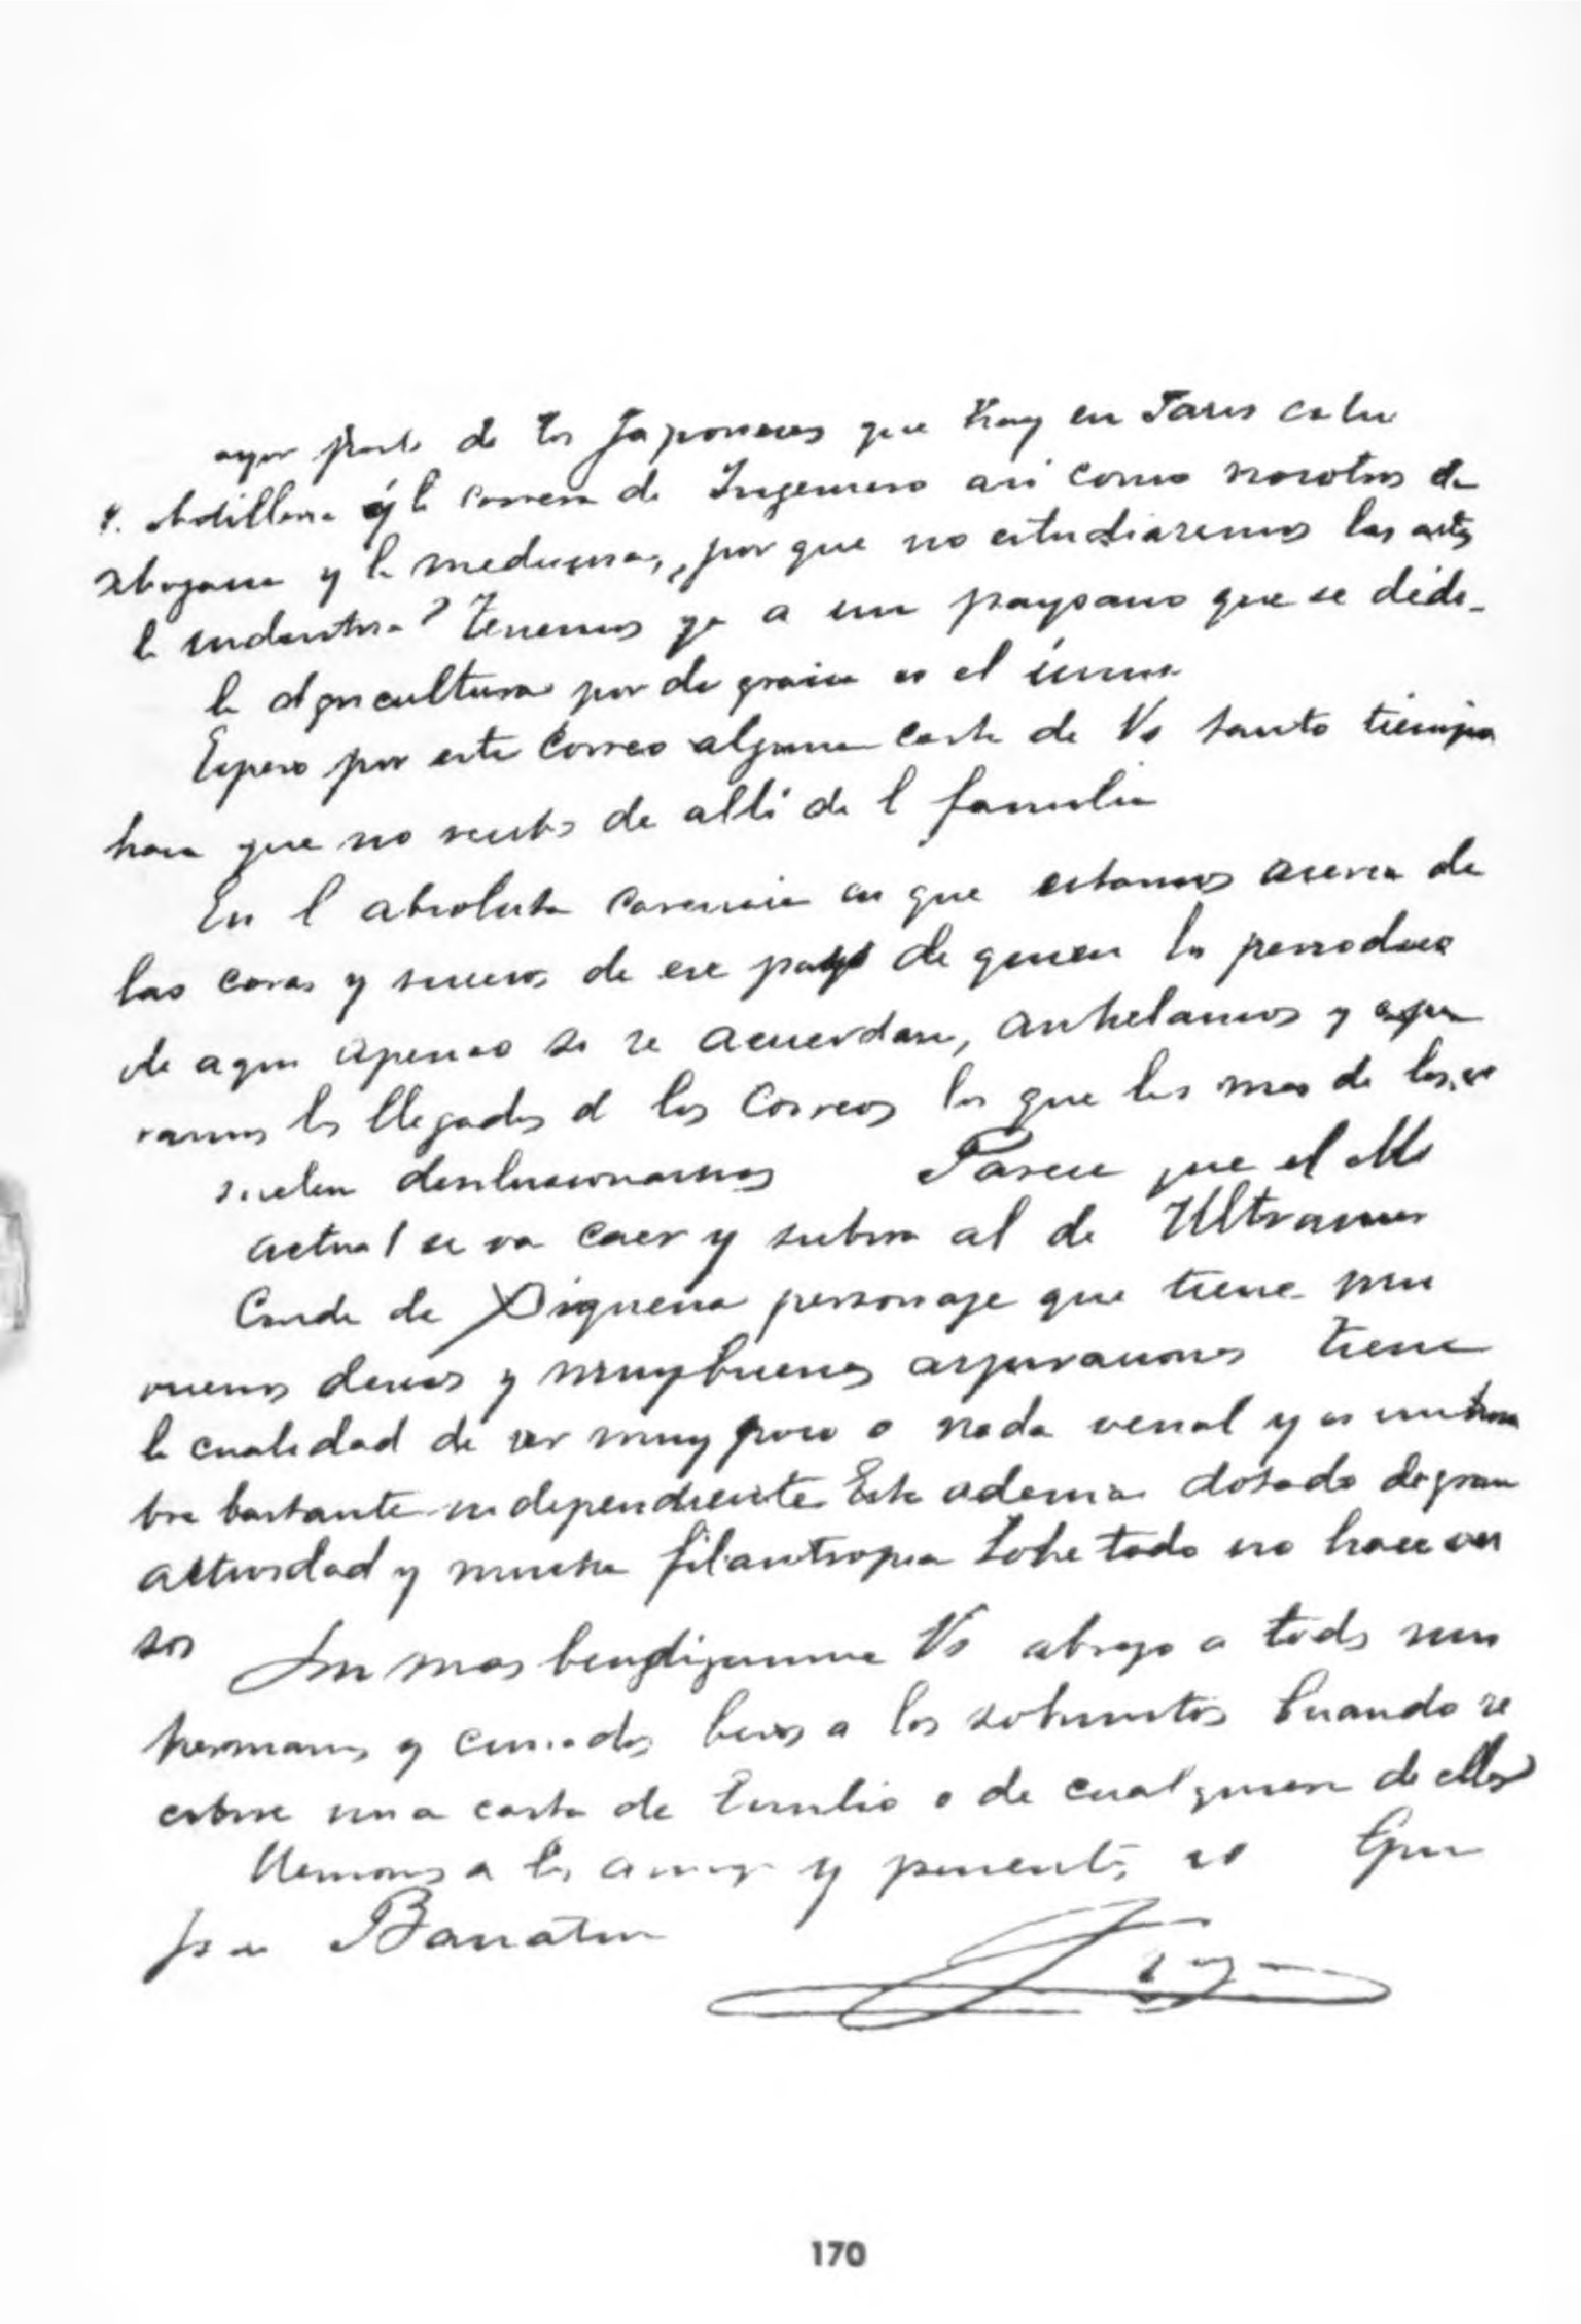 ayor parte de los Japoneses que hay en Paris estu
Artilleria y la carrera de Ingeniero asi como nosotros de
abogacia y la medicina, por que no estudiaremos las artes
la industria? Tenemos ya a un paysano que se dedi-
la Agricultura por desgracia es el único
Espero por este Correo alguna carta de Vs tanto tiempo
hace que no recibo de alli de l familia
En l absoluta carencia en que estamos acerca de
las cosas y sucesos de ese pays de quien los periodicos
de aqui apenas si se acuerdan, anhelamos y espe
ramos las llegadas d los Correos los que las mas de las ve
suelen desilusionarnos Parece que el Mo
actual se va caer y subira al de Ultramar
Conde de Xiquena personaje que tiene muy
buenos deseos y muy buenas aspiraciones tiene
la cualidad de ser muy poco o nada venal y es un hom
bre bastante independiente Esta ademas dotado de gran
actividad y mucha filantropia Sobre todo no hace ver
sos Sin mas bendiganme Vs abrazo a todos mis
hermanos y cuñados besos a los sobrinitos Cuando re
cibire una carta de Emilio o de cualquiera de ellos
Memorias a los amigos y parientes
Banatin
170